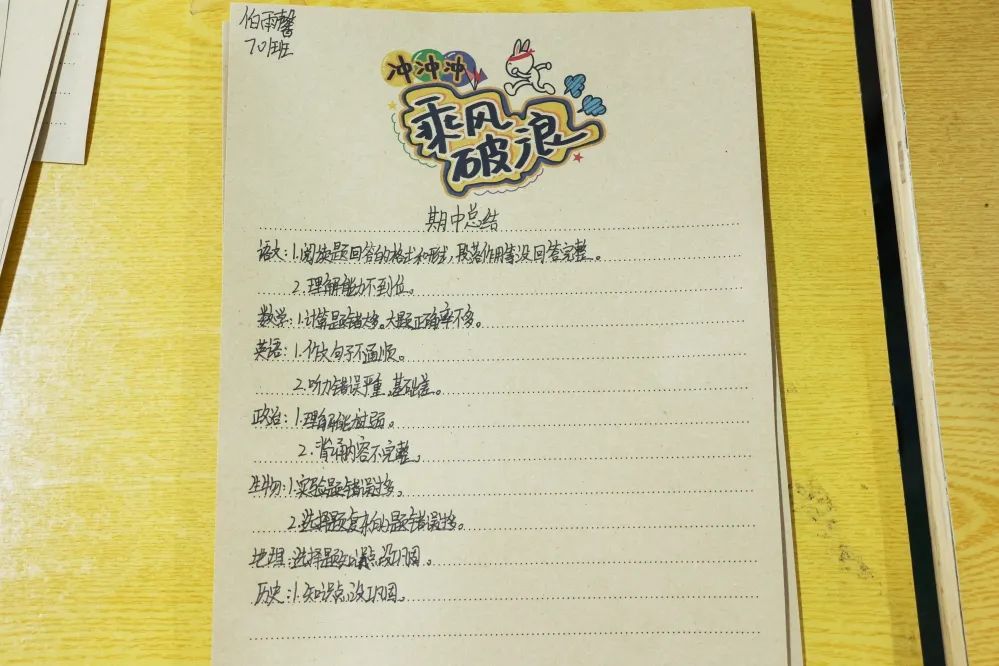 伯雨馨
701班
冲冲冲
乘风
破浪
期中总结
语文:1.阅读题回答的格式和形式,段落作用等没回答完整。
2.理解能力不到位。
数学:1.计算题错太多。大题正确率不多。
英语:1.作文句子不通顺。
2.听力错误严重,基础差。
政治:1.理解能力弱。
2.背诵内容不完整。
生物:1.实验题错误多。
2.选择题复杂的题错误多。
地理:选择题知识点没巩固。
历史:1.知识点没巩固。